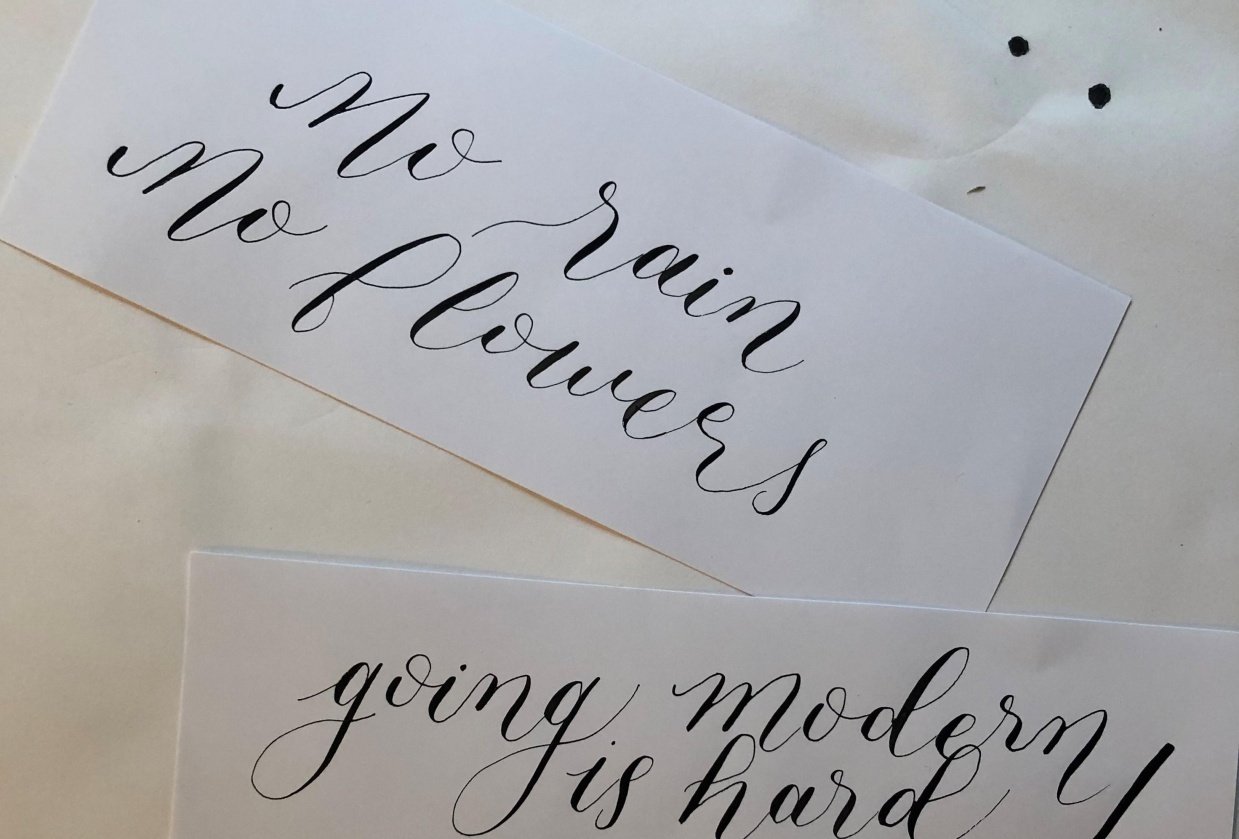 No rain
No flowers
going modern
is hard!